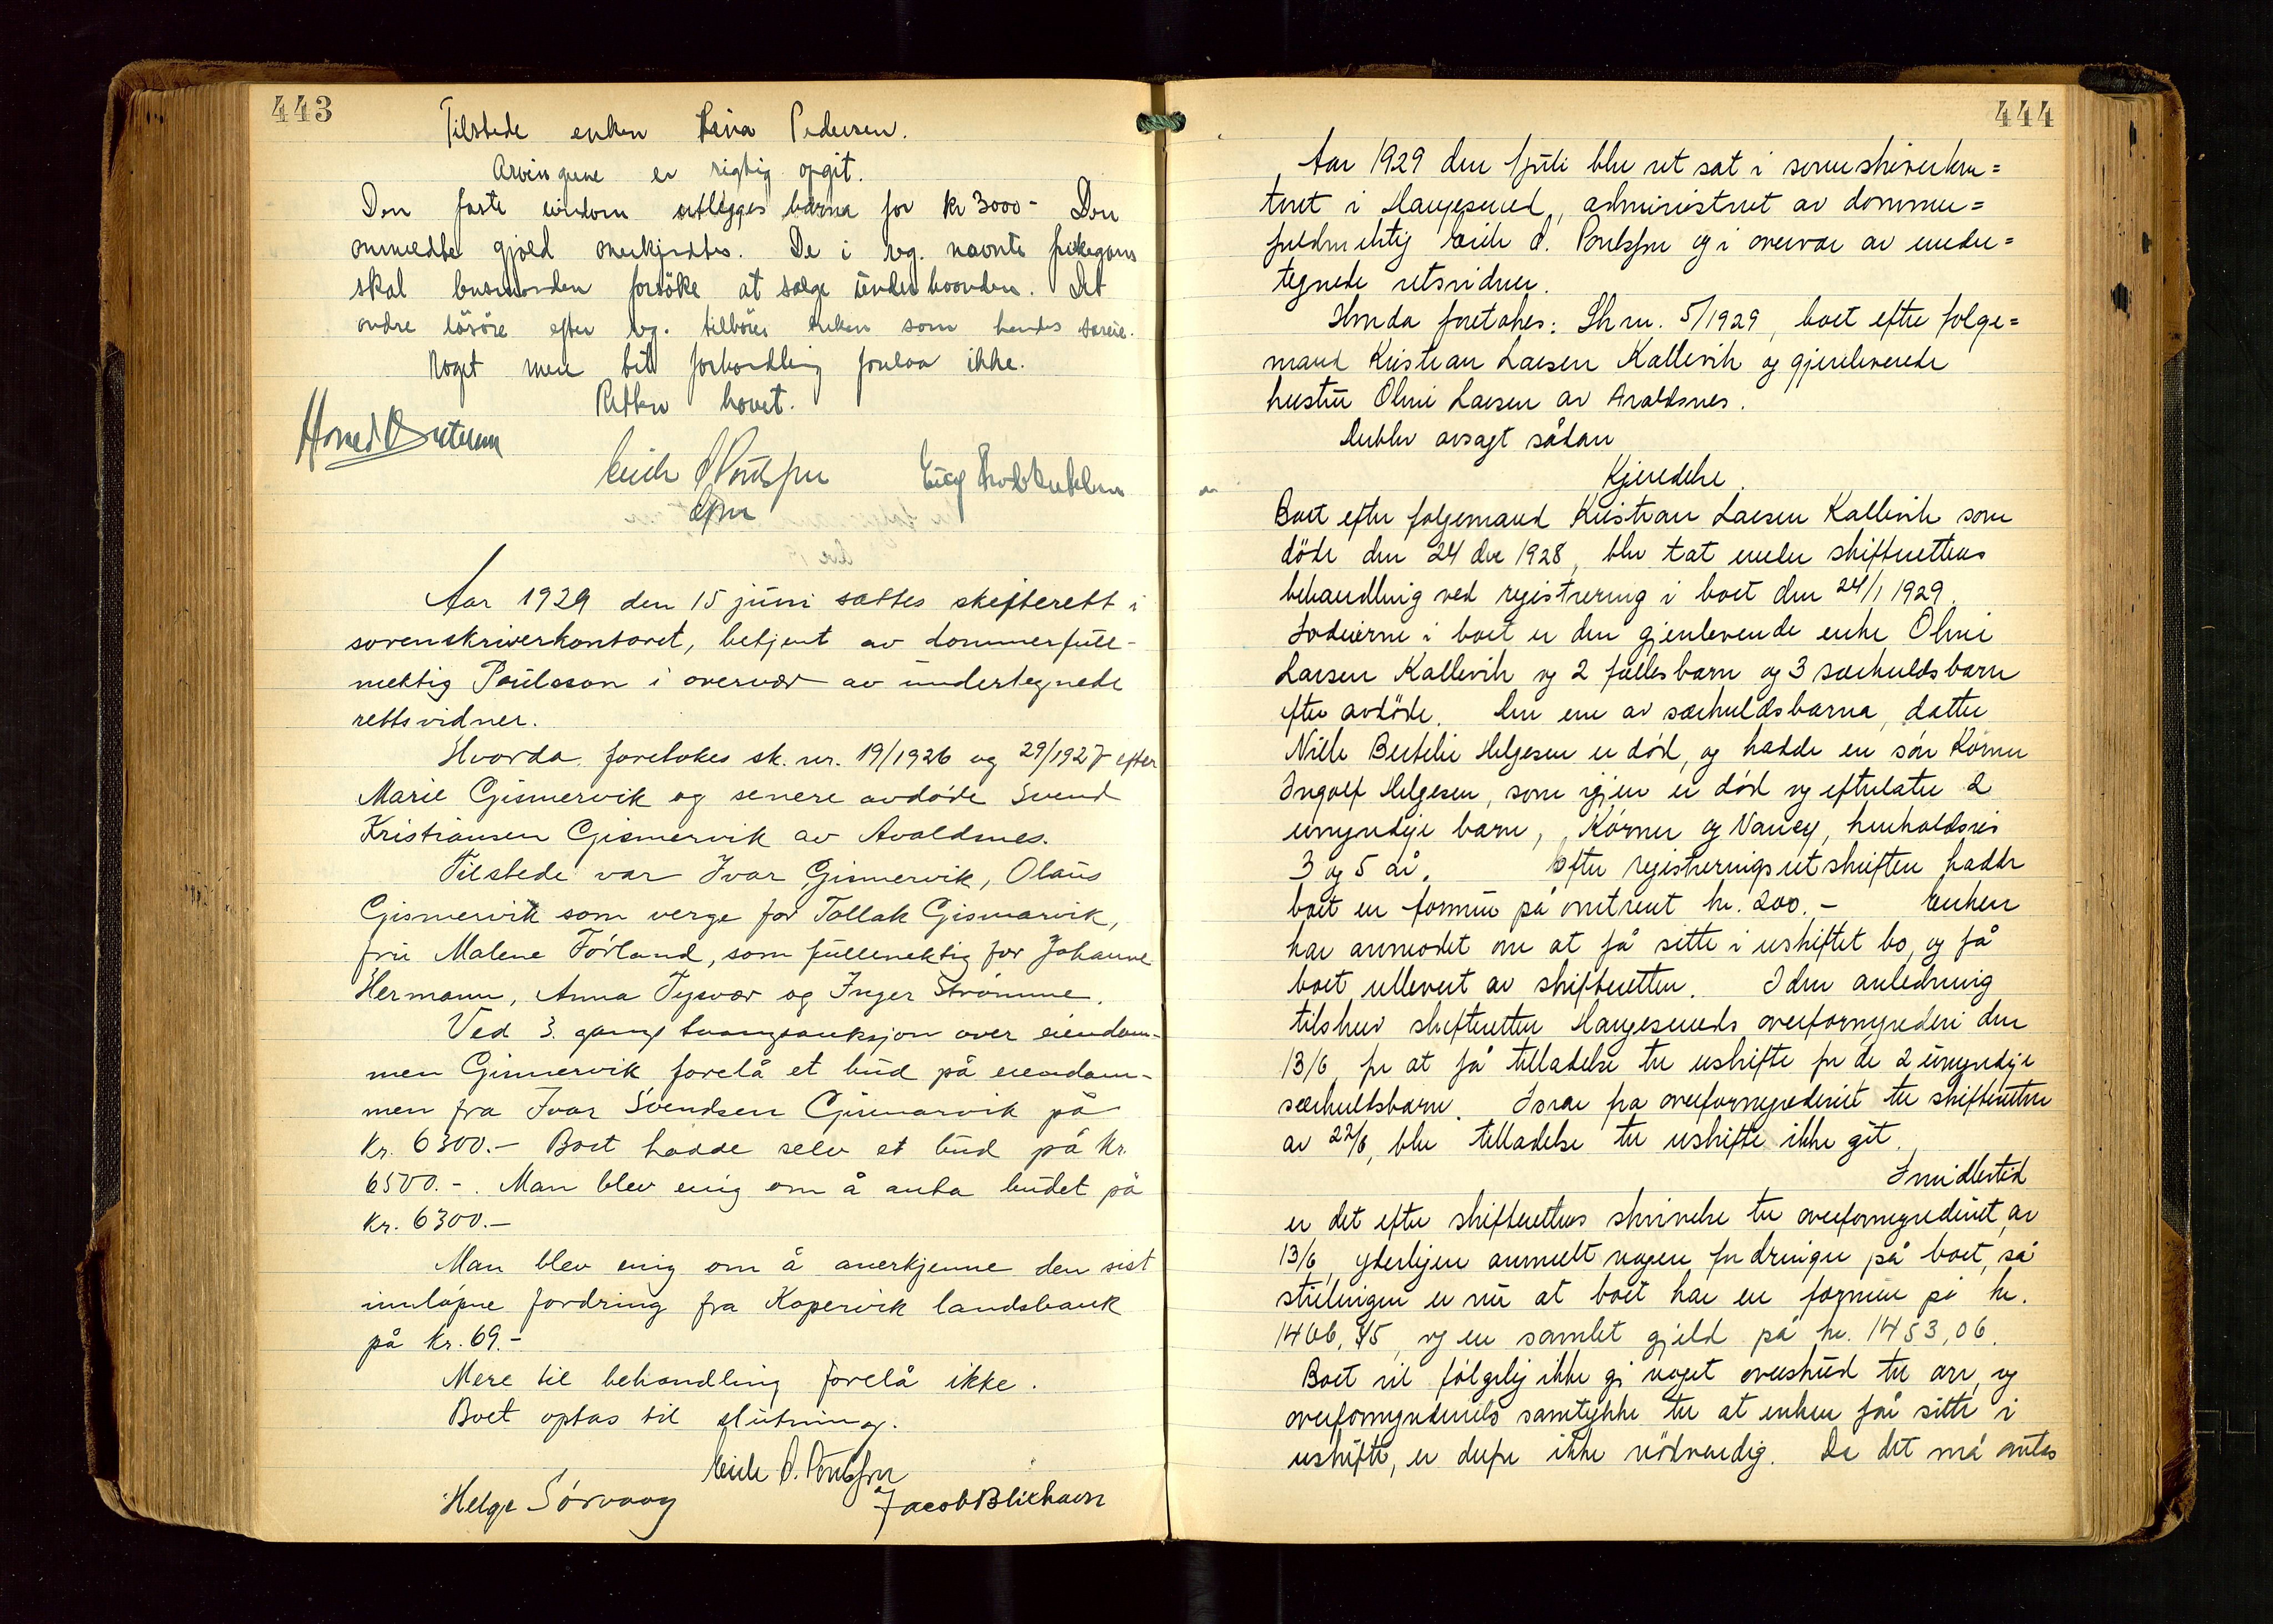 443
Tilstede enken Lina Pedersen.
Arvingene er rigtig opgit.
Den faste eiendom utlægges barna for kr 3000- Den
anmeldte gjæld anerkjendtes. De i reg. nævnte
skal bestyreren forsöke at sælge underhaanden. Det
andre lösöre efter reg. tilhörer enken som hendes særeie.
Noget mere til forhandling forelaa ikke.
Retten hævet.
Erich A Poulsson
Aar 1929 den 15 juni sattes skifterett i
sorenskriverkontoret, betjent av dommerfull-
mektig Poulsson i overvær av undertegnede
rettsvidner.
Hvorda foretokes sk. nr. 19/1926 og 29/1927 efter
Marie Gismervik og senere avdøde Svend
Kristiansen Gismervik av Avaldsnes.
Tilstede var Ivar Gismervik, Olaus
Gismervik som verge for Tollak Gismarvik,
fru Malene Førland, som fullmektig for Johanne
Hermann, Anna Tysvær og Inger Strömme.
Ved 3. gang tvangsauksjon over eiendom-
men Gismervik forelå et bud på eiendom-
men fra Ivar Svendsen Gismarvik på
Kr. 6300.- Boet hadde selv et bud på Kr.
6500.-. Man blev enig om å anta budet på
Kr. 6300.-
Man blev enig om å anerkjenne den sist
innløpne fordring fra Kopervik landsbank
på Kr. 69.-
Mere til behandling forelå ikke.
Boet optas til slutning.
Erich A. Poulsson
Helge Sörvaag Jacob Blikhavn
444
Aar 1929 den 1 juli blev ret sat i sorenskriverkon=
toret i Haugesund, administrert av dommer=
fuldmektig Erich A. Poulsson og i overvær av under=
tegnede retsvidner.
Hvorda foretokes: Sk nr. 5/1929, boet efter folge=
mand Kristian Larsen Kallevik og gjenlevende
hustru Oline Larsen av Avaldsnes.
Derblev avsagt sådan
Kjendelse.
Boet efter folgemand Kristian Larsen Kallevik som
döde den 24 des 1928, blev tat under skifterettens
behandling ved registrering i boet den 24/1 1929.
Lodeierne i boet er den gjenlevende enke Oline
Larsen Kallevik og 2 fællesbarn og 3 særkuldsbarn
efter avdöde. Den ene av særkuldsbarna, datter
Nille Bertelie Helgesen er död, og hadde en sön Körner
Ingolf Helgesen, som igjen er död og efterlater 2
umyndige barn, Körner og Nancy, henholdsvis
3 og 5 år. Efter registreringsutskriften hadde
boet en formue på omtrent kr. 200.- Enken
har anmodet om at få sitte i uskiftet bo, og få
boet utlevert av skifteretten. I den anledning
tilskrev skifteretten Haugesunds overformynderi den
13/6 for at få tilladelse til uskifte for de 2 umyndige
særkuldsbarn. I svar fra overformynderiet til skifteretten
av 22/6, blev tilladelse til uskifte ikke git.
Imidlertid
er det efter skifterettens skrivelse til overformynderiet av
13/6, yderligere anmeldt nogen fordringer på boet, så
stillingen er nu at boet har en formue på kr.
1406,45, og en samlet gjeld på kr. 1453,06.
Boet vil fölgelig ikke gi noget overskud til arv, og
overformynderiets samtykke til at enken får sitte i
uskifte, er derfor ikke nödvendig. Da det må antas